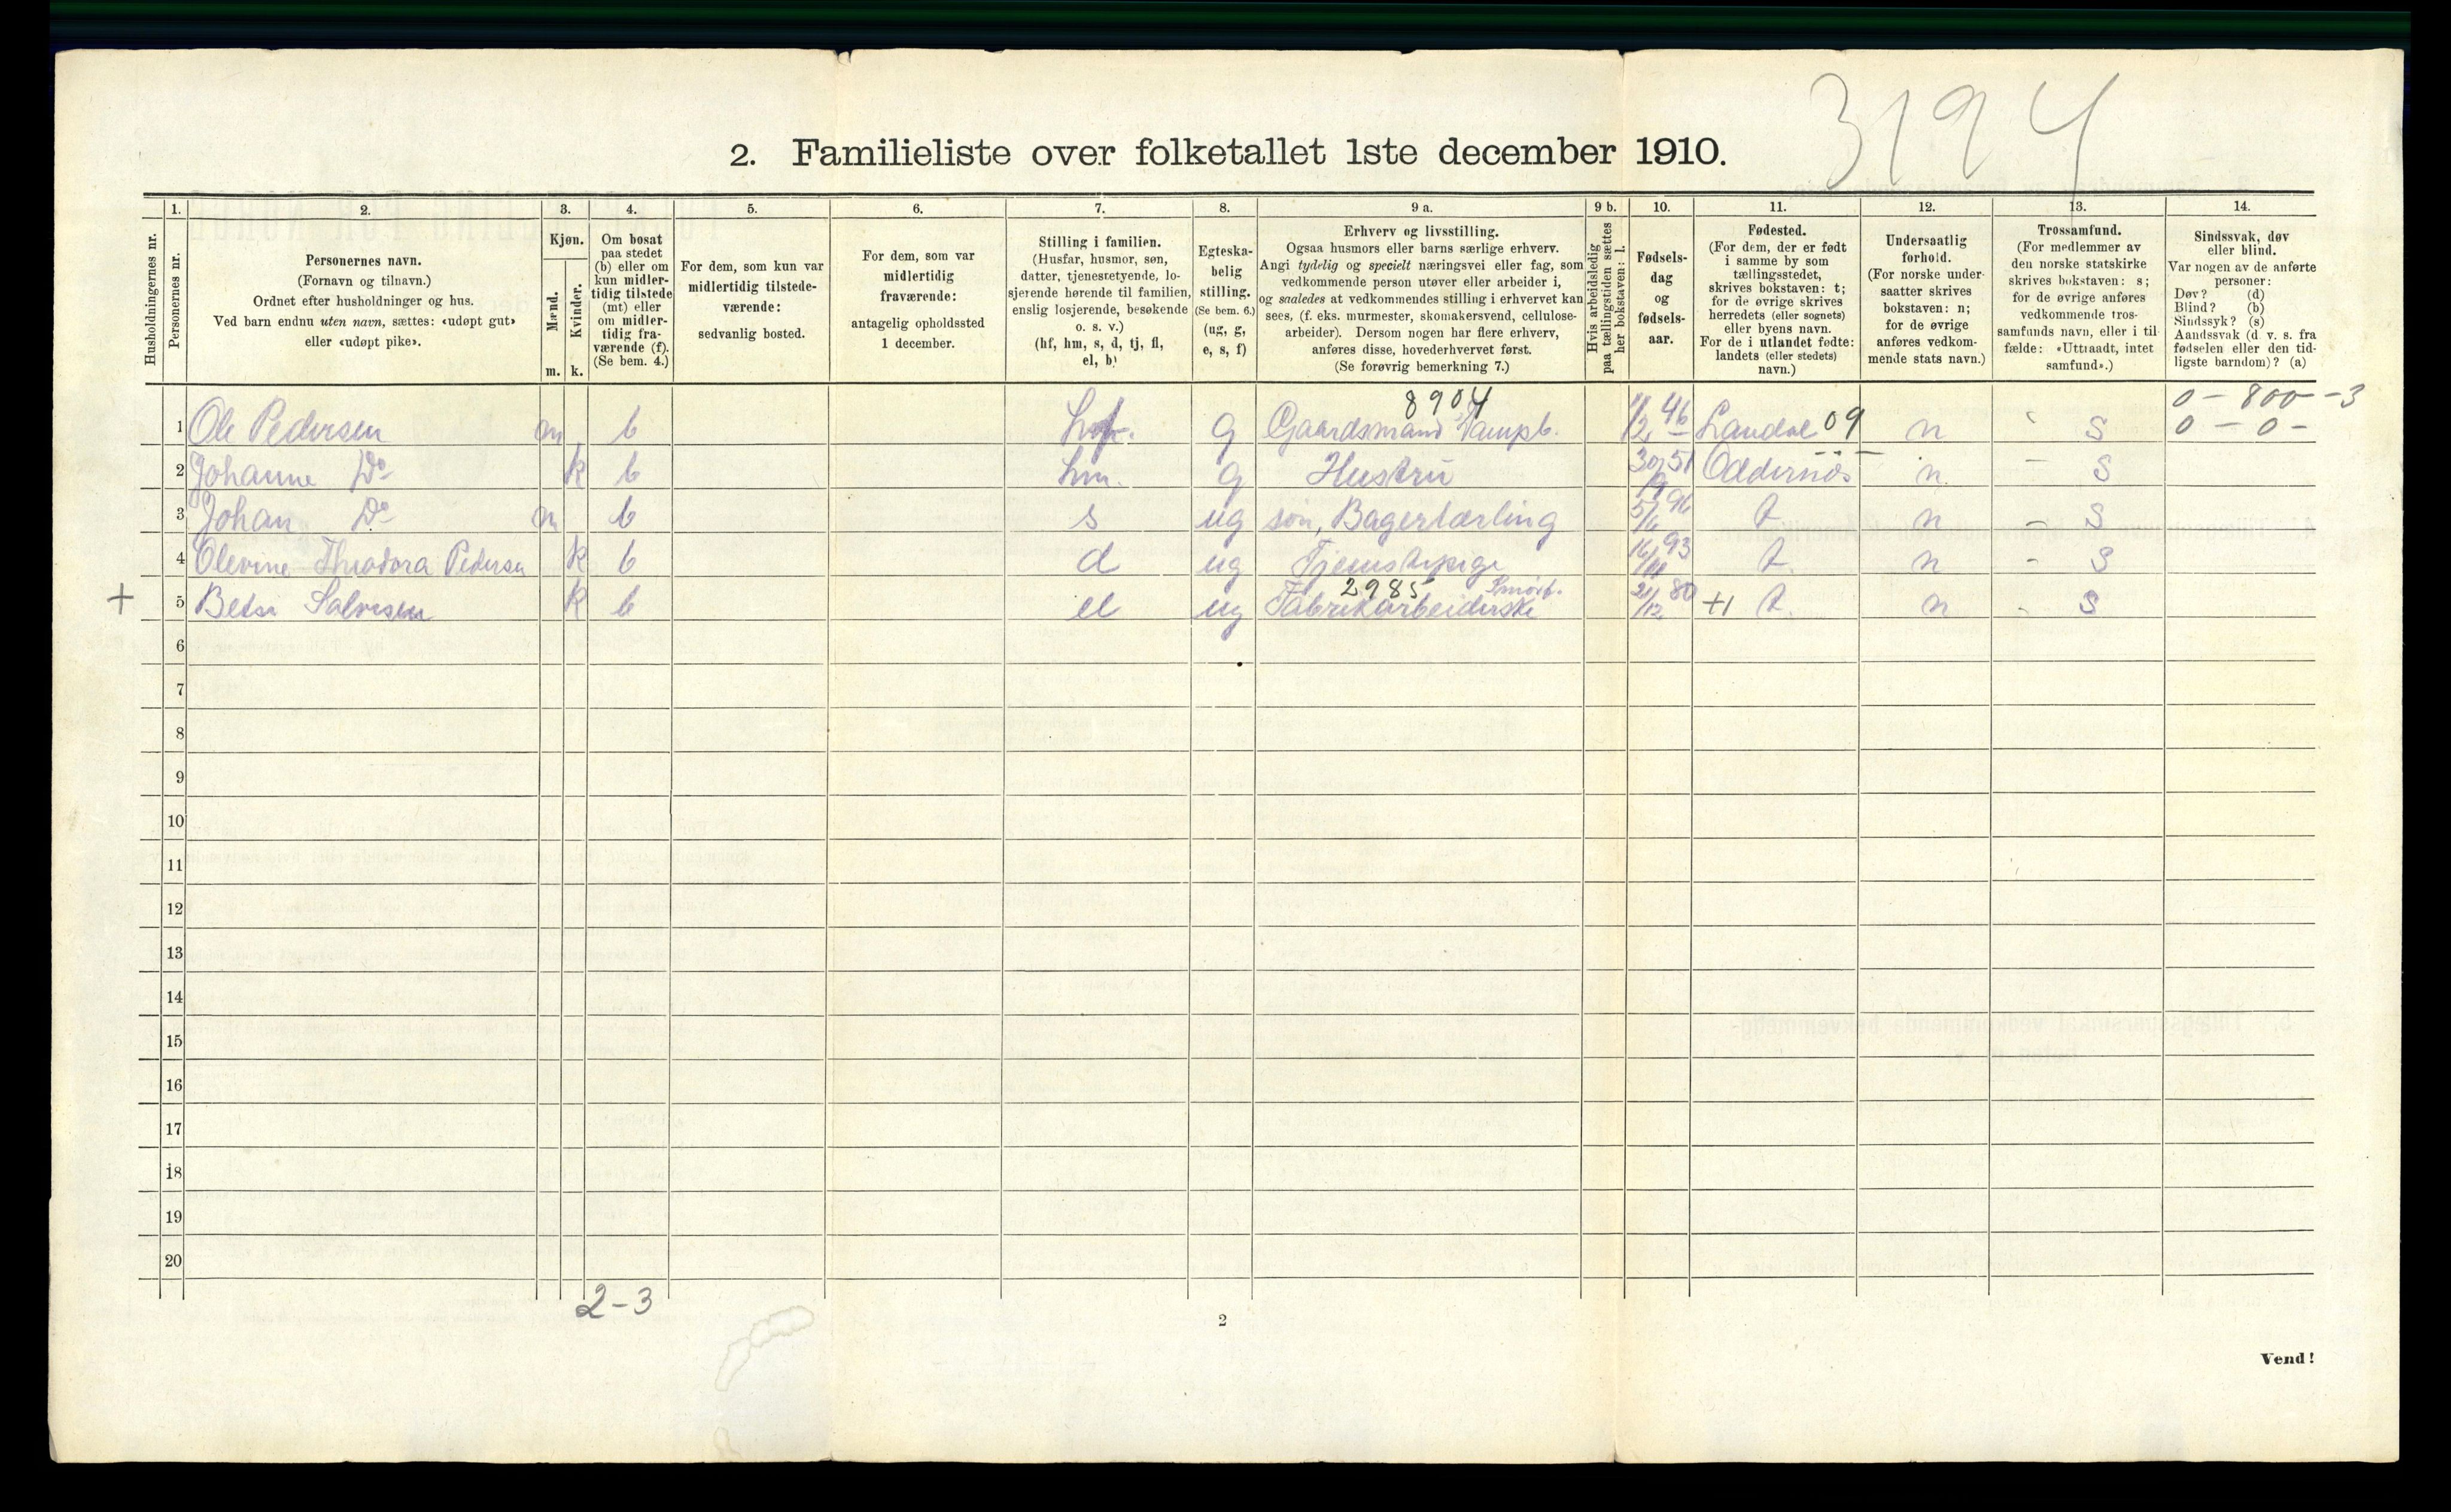 3194
2. Familieliste over folketallet 1ste december 1910.
Husholdningernes nr.
1. Personernes nr.
2. Personernes navn.
(Fornavn og tilnavn.)
Ordnet efter husholdninger og hus.
Ved barn endnu uten navn, sættes: «udøpt gut»
eller «udøpt pike».
3. Kjøn.
Mænd. m.
Kvinder. k.
4. Om bosat
paa stedet
(b) eller om
kun midler-
tidig tilstede
(mt) eller
om midler-
tidig fra-
værende (f).
(Se bem. 4.)
5. For dem, som kun var
midlertidig tilstede-
værende:
sedvanlig bosted.
6. For dem, som var
midlertidig
fraværende:
antagelig opholdssted
1 december.
7. Stilling i familien.
(Husfar, husmor, søn,
datter, tjenestetyende, lo-
sjerende hørende til familien,
enslig losjerende, besøkende
o. s. v.)
(hf, hm, s, d, tj, fl,
el, b)
8. Egteska-
belig
stilling.
(Se bem. 6.)
(ug, g,
e, s, f)
9 a. Erhverv og livsstilling.
Ogsaa husmors eller barns særlige erhverv.
Angi tydelig og specielt næringsvei eller fag, som
vedkommende person utøver eller arbeider i,
og saaledes at vedkommendes stilling i erhvervet kan
sees, (f. eks. murmester, skomakersvend, cellulose-
arbeider). Dersom nogen har flere erhverv,
anføres disse, hovederhvervet først.
(Se forøvrig bemerkning 7.)
9 b. Hvis arbeidsledig
paa tællingstiden sættes
her bokstaven: l.
10. Fødsels-
dag
og
fødsels-
aar.
11. Fødested.
(For dem, der er født
i samme by som
tællingsstedet,
skrives bokstaven: t;
for de øvrige skrives
herredets (eller sognets)
eller byens navn.
For de i utlandet fødte:
landets (eller stedets)
navn.)
12. Undersaatlig
forhold.
(For norske under-
saatter skrives
bokstaven: n;
for de øvrige
anføres vedkom-
mende stats navn.)
13. Trossamfund.
(For medlemmer av
den norske statskirke
skrives bokstaven: s;
for de øvrige anføres
vedkommende tros-
samfunds navn, eller i til-
fælde: «Uttraadt, intet
samfund».)
14. Sindssvak, døv
eller blind.
Var nogen av de anførte
personer:
Døv? (d)
Blind? (b)
Sindssyk? (s)
Aandssvak (d. v. s. fra
fødselen eller den tid-
ligste barndom)? (a)
8904 0 - 800 - 3
1 Ole Pedersen m b hf. g Gaardsmand Dampb. 46 Laudal 09 n s 0 - 0 -
2 Johanne Do k b hm. g Hustru 30 51 Oddernes n. - s
3 Johan Do m b s ug søn, Bagerlærling 96 t n - s
4 Olevine Theodora Pedersen k b d ug Tjenestepige 16 93 t. n - s
2985
+ 5 Betsi Salvesen k b el ug Fabrikarbeiderske 21/12 80 +1 t. n - s
6
7
8
9
10
11
12
13
14
15
16
17
18
19
20
2-3
2
Vend!